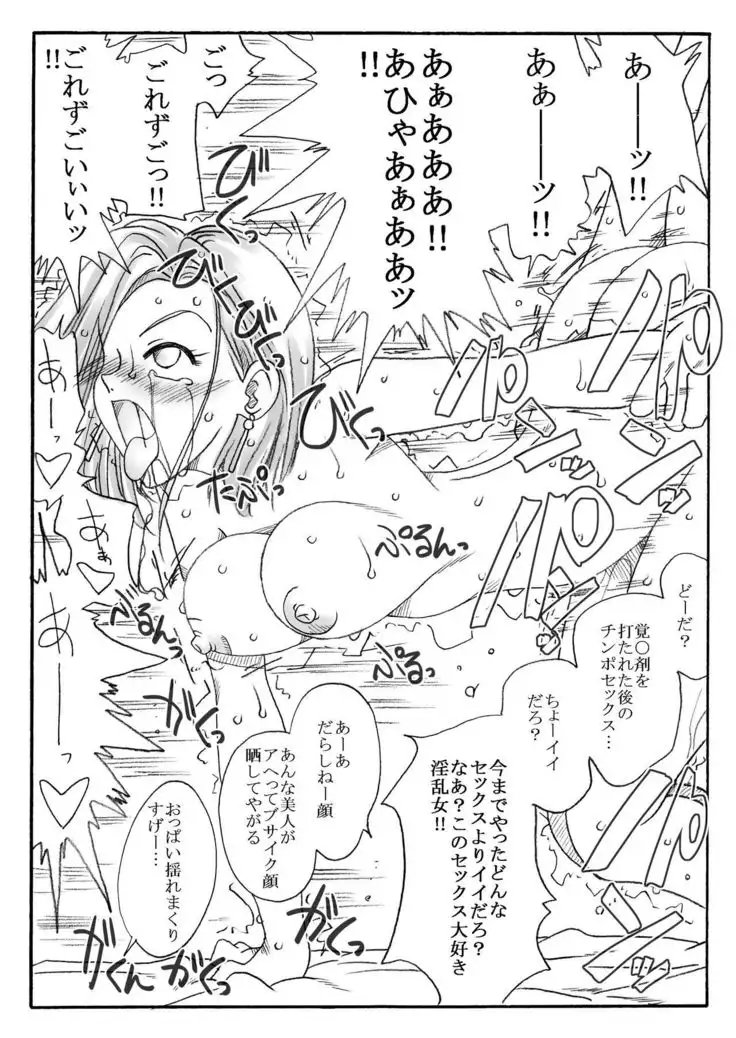 あーーッ!!
あぁーーッ!!
あぁあああ!!
あひゃあぁああッ
!!
ごっ
ごれずごっ!!
ごれずごいぃいッ
!!
びくっ
びくびくっ
びくっ
たぷっ
ぷるんっ
ぷるっ
べるんっ
パンッ
パンッ
パンッ
パンッ
あーっ♡
あぁ♡
あーっ♡
どーだ?
覚〇剤を
打たれた後の
チンポセックス…
ちょーイイ
だろ?
今までやったどんな
セックスよりイイだろ?
なあ?このセックス大好き
淫乱女!!
あーあ
だらしねー顔
あんな美人が
アヘってブサイク顔
晒してやがる
おっぱい揺れまくり
すげー…
がくっ
がくっ
がくっ
がくんっ